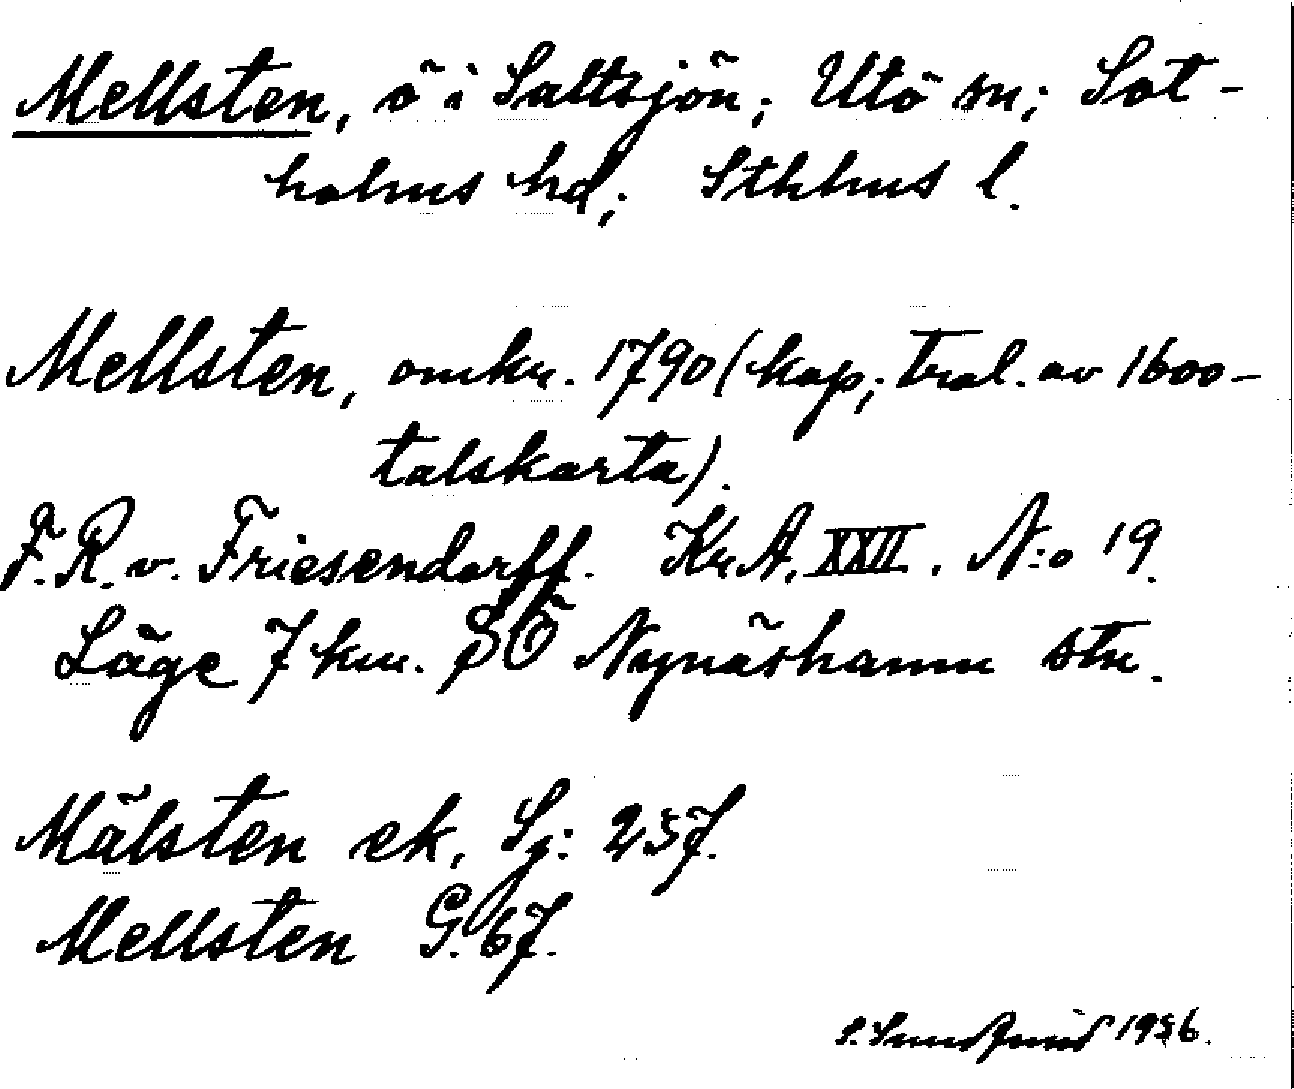 Mellsten, ö i Saltsjön; Utö sn; Sot-
holms hd; Sthlms l.
Mellsten, omkr. 1790 (kop; trol. av 1600-
talskarta).
F. R. v. Friesendorff. Kr.A. XXII. N:o 19.
Läge 7 km. SÖ Nynäshamn stn.
Mälsten ek. Sj: 257.
Mellsten G. 67.
1956.